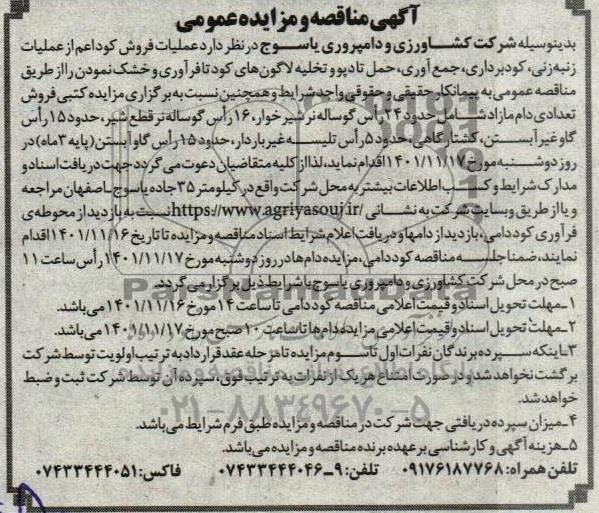 آگهی مناقصه و مزایده عمومی
بدینوسیله شرکت کشاورزی و دامپروری یاسوج در نظر دارد عملیات فروش کود اعم از عملیات
زنبه‌زنی، کودبرداری، جمع آوری، حمل تا دپو و تخلیه لاگون‌های کود تا فرآوری و خشک نمودن را از طریق
مناقصه عمومی به پیمانکار حقیقی و حقوقی واجد شرایط و همچنین نسبت به برگزاری مزایده کتبی فروش
تعدادی دام مازاد شامل حدود ۲۴ رأس گوساله نر شیرخوار، ۱۶ رأس گوساله نر قطع شیر، حدود ۱۵ رأس
گاو غیر آبستن، کشتارگاهی، حدود ۵ رأس تلیسه غیر باردار، حدود ۱۵ رأس گاو آبستن (پایه ۳ ماه) در
روز دوشنبه مورخ ۱۴۰۱/۱۱/۱۷ اقدام نماید، لذا از کلیه متقاضیان دعوت می گردد جهت دریافت اسناد و
مدارک شرایط و کسب اطلاعات بیشتر به محل شرکت واقع در کیلومتر ۳۵ جاده یاسوج ـ اصفهان مراجعه
و یا از طریق وبسایت شرکت به نشانی https://www.agriyasouj.ir/ نسبت به بازدید از محوطه‌ی
فرآوری کود دامی، بازدید از دامها و دریافت اعلام شرایط اسناد مناقصه و مزایده تا تاریخ ۱۴۰۱/۱۱/۱۶ اقدام
نمایند، ضمنا جلسه مناقصه کود دامی، مزایده دام‌ها در روز دوشنبه مورخ ۱۴۰۱/۱۱/۱۷ رأس ساعت ۱۱
صبح در محل شرکت کشاورزی و دامپروری یاسوج با شرایط ذیل برگزار می گردد.
۱ـ مهلت تحویل اسناد و قیمت اعلامی مناقصه کود دامی تا ساعت ۱۴ مورخ ۱۴۰۱/۱۱/۱۶ می‌باشد.
۲ـ مهلت تحویل اسناد و قیمت اعلامی مزایده دام‌ها تا ساعت ۱۰ صبح مورخ ۱۴۰۱/۱۱/۱۷ می‌باشد.
۳ـ اینکه سپرده برندگان نفرات اول تا سوم مزایده تا مرحله عقد قرارداد به ترتیب اولویت توسط شرکت
برگشت نخواهد شد و در صورت امتناع هر یک از نفرات به ترتیب فوق، سپرده آن توسط شرکت ثبت و ضبط
خواهد شد.
۴ـ میزان سپرده دریافتی جهت شرکت در مناقصه و مزایده طبق فرم شرایط می‌باشد.
۵ـ هزینه آگهی و کارشناسی بر عهده برنده مناقصه و مزایده می‌باشد.
تلفن همراه: ۰۹۱۷۶۱۸۷۷۶۸ تلفن: ۹ـ۰۷۴۳۳۴۴۴۰۴۶ فاکس: ۰۷۴۳۳۴۴۴۰۵۱
ParsNamadData
۰۲۱-۸۸۳۴۹۶۷۰-۵